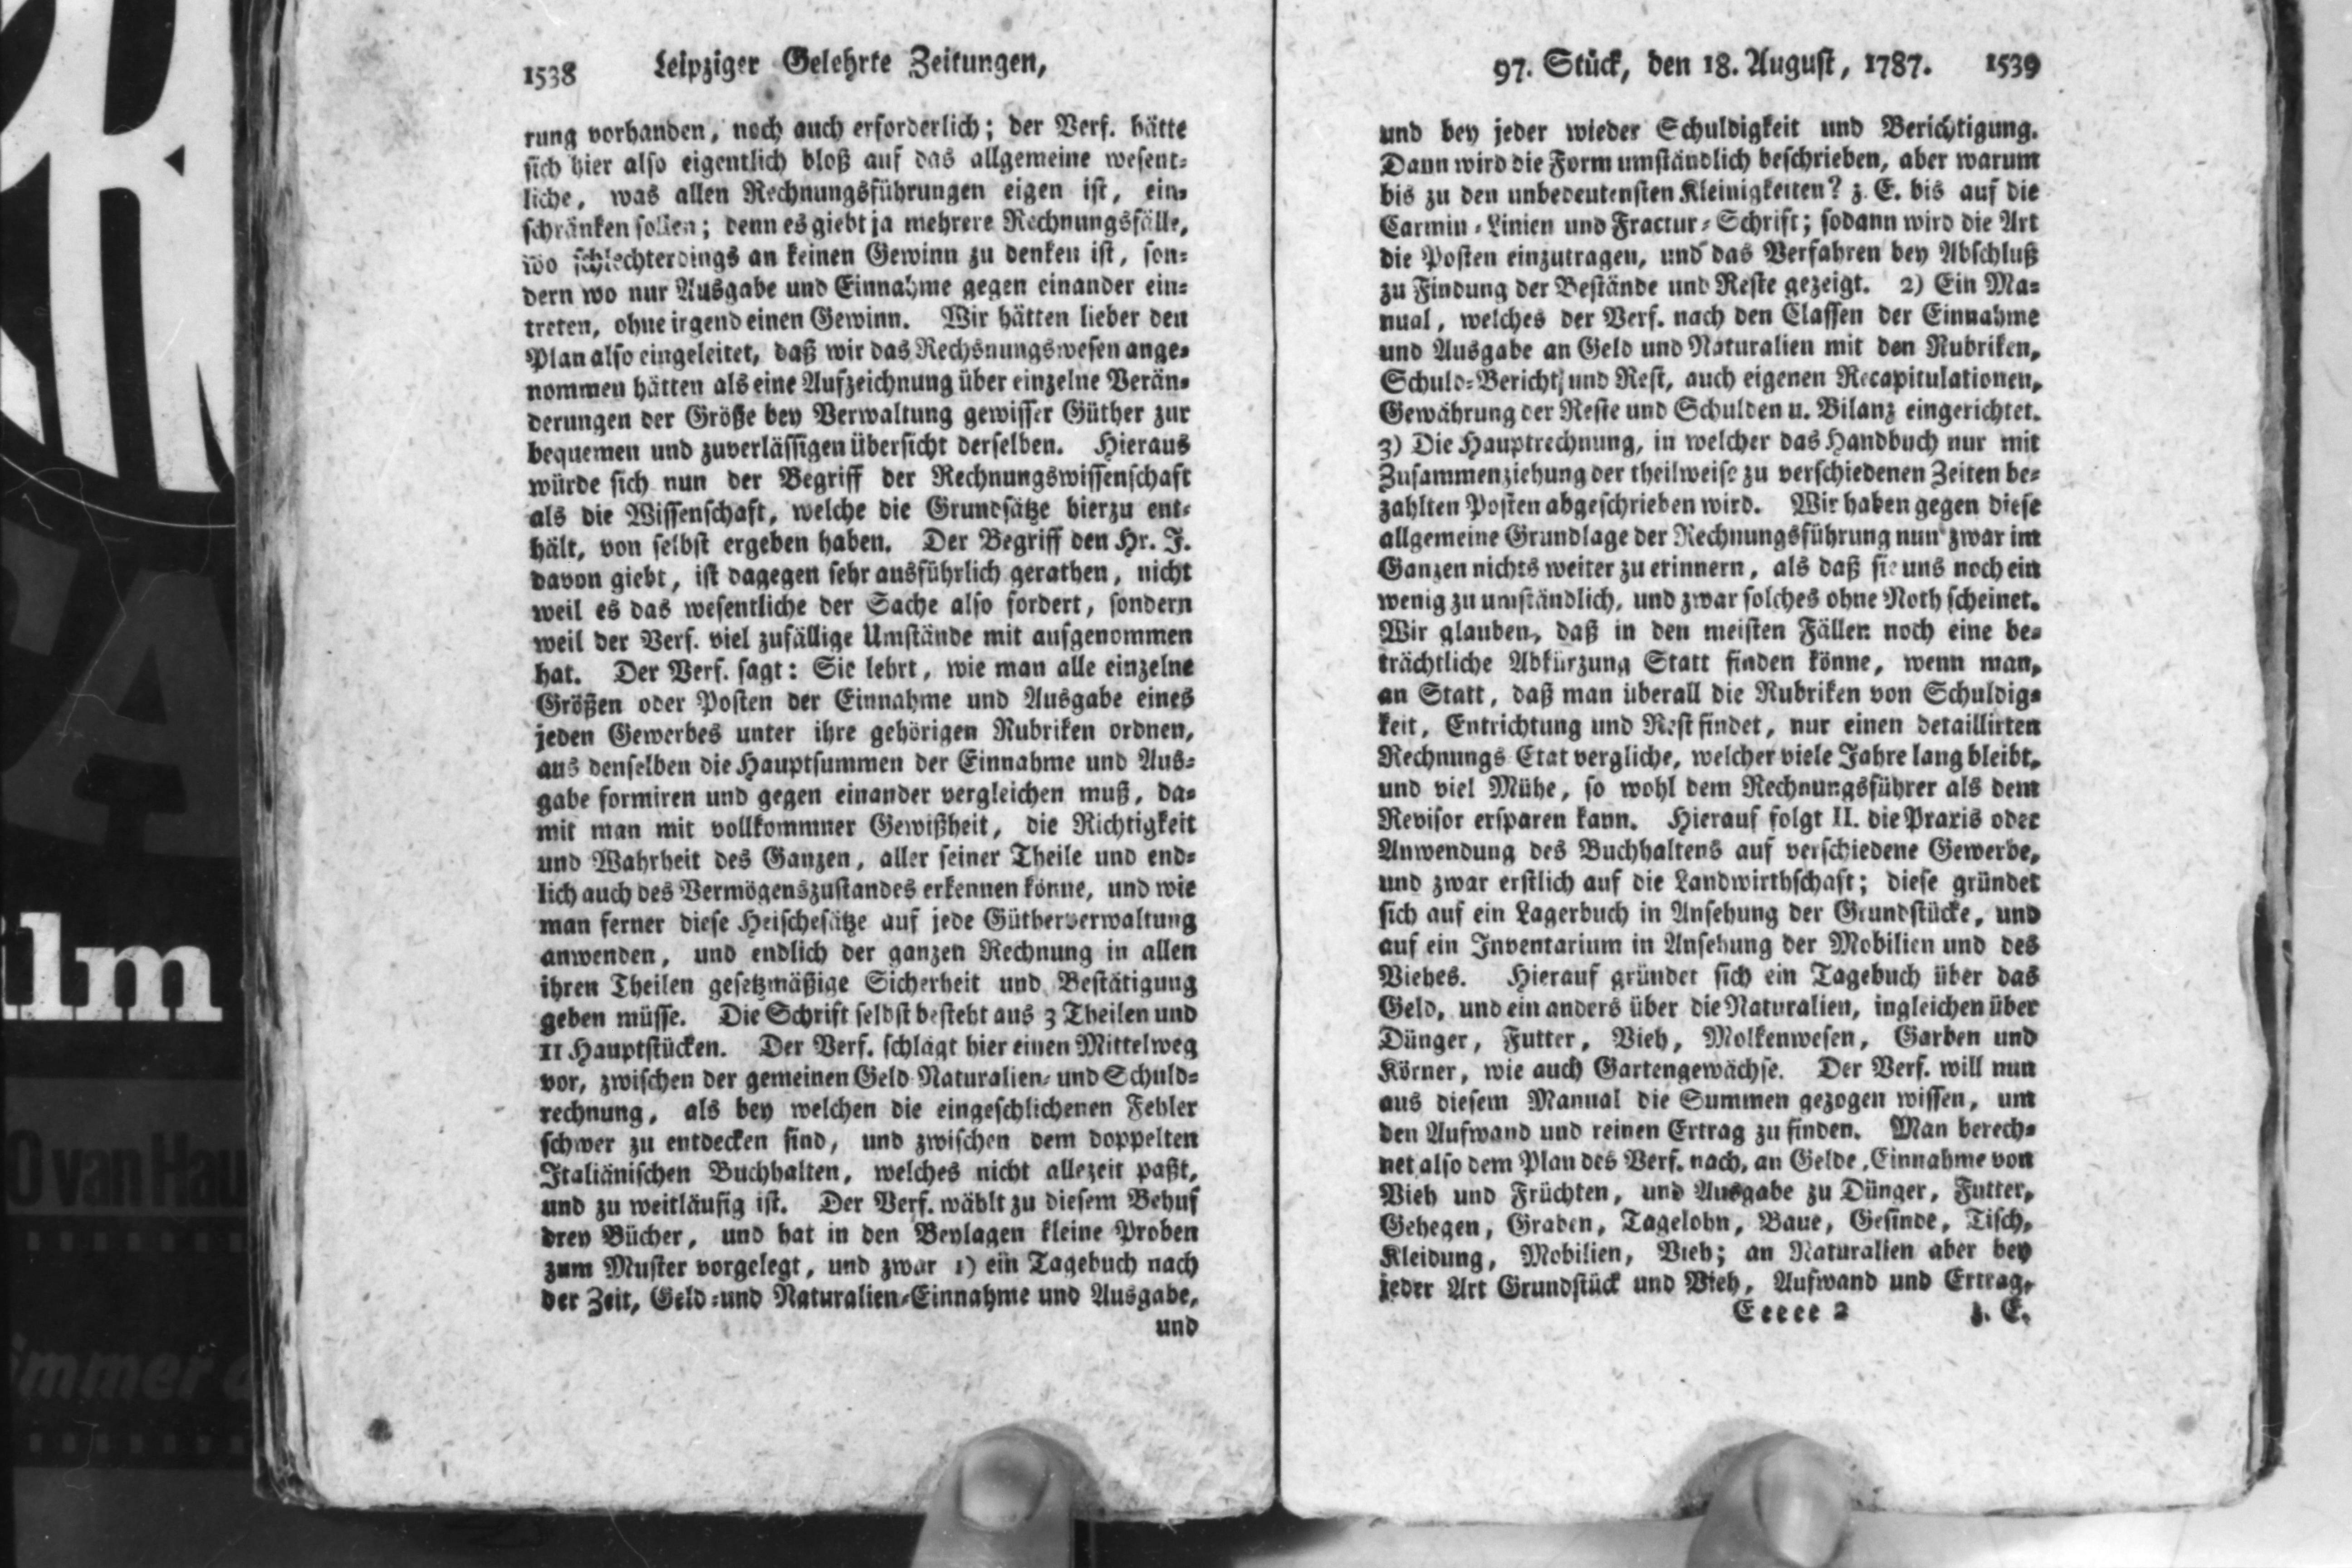 1538 Leipziger Gelehrte Zeitungen,
rung vorhanden, noch auch erforderlich; der Verf. hätte
sich hier also eigentlich bloß auf das allgemeine wesent-
liche, was allen Rechnungsführungen eigen ist, ein-
schränken sollen; denn es giebt ja mehrere Rechnungsfälle,
wo schlechterdings an keinen Gewinn zu denken ist, son-
dern wo nur Ausgabe und Einnahme gegen einander ein-
treten, ohne irgend einen Gewinn. Wir hätten lieber den
Plan also eingeleitet, daß wir das Rechsnungswesen ange-
nommen hätten als eine Aufzeichnung über einzelne Verän-
derungen der Größe bey Verwaltung gewisser Güther zur
bequemen und zuverlässigen übersicht derselben. Hieraus
würde sich nun der Begriff der Rechnungswissenschaft
als die Wissenschaft, welche die Grundsätze hierzu ent-
hält, von selbst ergeben haben. Der Begriff den Hr. J.
davon giebt, ist dagegen sehr ausführlich gerathen, nicht
weil es das wesentliche der Sache also fordert, sondern
weil der Verf. viel zufällige Umstände mit aufgenommen
hat. Der Verf. sagt: Sie lehrt, wie man alle einzelne
Größen oder Posten der Einnahme und Ausgabe eines
jeden Gewerbes unter ihre gehörigen Rubriken ordnen,
aus denselben die Hauptsummen der Einnahme und Aus-
gabe formiren und gegen einander vergleichen muß, da-
mit man mit vollkommner Gewißheit, die Richtigkeit
und Wahrheit des Ganzen, aller seiner Theile und end-
lich auch des Vermögenszustandes erkennen könne, und wie
man ferner diese Heischesätze auf jede Gütherverwaltung
anwenden, und endlich der ganzen Rechnung in allen
ihren Theilen gesetzmäßige Sicherheit und Bestätigung
geben müsse. Die Schrift selbst besteht aus 3 Theilen und
11 Hauptstücken. Der Verf. schlägt hier einen Mittelweg
vor, zwischen der gemeinen Geld-Naturalien- und Schuld-
rechnung, als bey welchen die eingeschlichenen Fehler
schwer zu entdecken sind, und zwischen dem doppelten
Italiänischen Buchhalten, welches nicht allezeit paßt,
und zu weitläufig ist. Der Verf. wählt zu diesem Behuf
drey Bücher, und hat in den Beylagen kleine Proben
zum Muster vorgelegt, und zwar 1) ein Tagebuch nach
der Zeit, Geld-und Naturalien-Einnahme und Ausgabe,
und
97. Stück, den 18. August, 1787. 1539
und bey jeder wieder Schuldigkeit und Berichtigung.
Dann wird die Form umständlich beschrieben, aber warum
bis zu den unbedeutensten Kleinigkeiten? z. E. bis auf die
Carmin-Linien und Fractur-Schrift; sodann wird die Art
die Posten einzutragen, und das Verfahren bey Abschluß
zu Findung der Bestände und Reste gezeigt. 2) Ein Ma-
nual, welches der Verf. nach den Classen der Einnahme
und Ausgabe an Geld und Naturalien mit den Rubriken,
Schuld-Bericht, und Rest, auch eigenen Recapitulationen,
Gewährung der Reste und Schulden u. Bilanz eingerichtet.
3) Die Hauptrechnung, in welcher das Handbuch nur mit
Zusammenziehung der theilweise zu verschiedenen Zeiten be-
zahlten Posten abgeschrieben wird. Wir haben gegen diese
allgemeine Grundlage der Rechnungsführung nun zwar im
Ganzen nichts weiter zu erinnern, als daß sie uns noch ein
wenig zu umständlich, und zwar solches ohne Noth scheinet.
Wir glauben, daß in den meisten Fällen noch eine be-
trächtliche Abkürzung Statt finden könne, wenn man,
an Statt, daß man überall die Rubriken von Schuldig-
keit, Entrichtung und Rest findet, nur einen detaillirten
Rechnungs Etat vergliche, welcher viele Jahre lang bleibt,
und viel Mühe, so wohl dem Rechnungsführer als dem
Revisor ersparen kann. Hierauf folgt II. die Praxis oder
Anwendung des Buchhaltens auf verschiedene Gewerbe,
und zwar erstlich auf die Landwirthschaft; diese gründet
sich auf ein Lagerbuch in Ansehung der Grundstücke, und
auf ein Inventarium in Ansehung der Mobilien und des
Viehes. Hierauf gründet sich ein Tagebuch über das
Geld, und ein anders über die Naturalien, ingleichen über
Dünger, Futter, Vieh, Molkenwesen, Garben und
Körner, wie auch Gartengewächse. Der Verf. will nun
aus diesem Manual die Summen gezogen wissen, um
den Aufwand und reinen Ertrag zu finden. Man berech-
net also dem Plan des Verf. nach, an Gelde, Einnahme von
Vieh und Früchten, und Ausgabe zu Dünger, Futter,
Gehegen, Graben, Tagelohn, Baue, Gesinde, Tisch,
Kleidung, Mobilien, Vieh; an Naturalien aber bey
jeder Art Grundstück und Vieh, Aufwand und Ertrag,
Eeeee 2 z. E.
ilm
O van Hau
immer